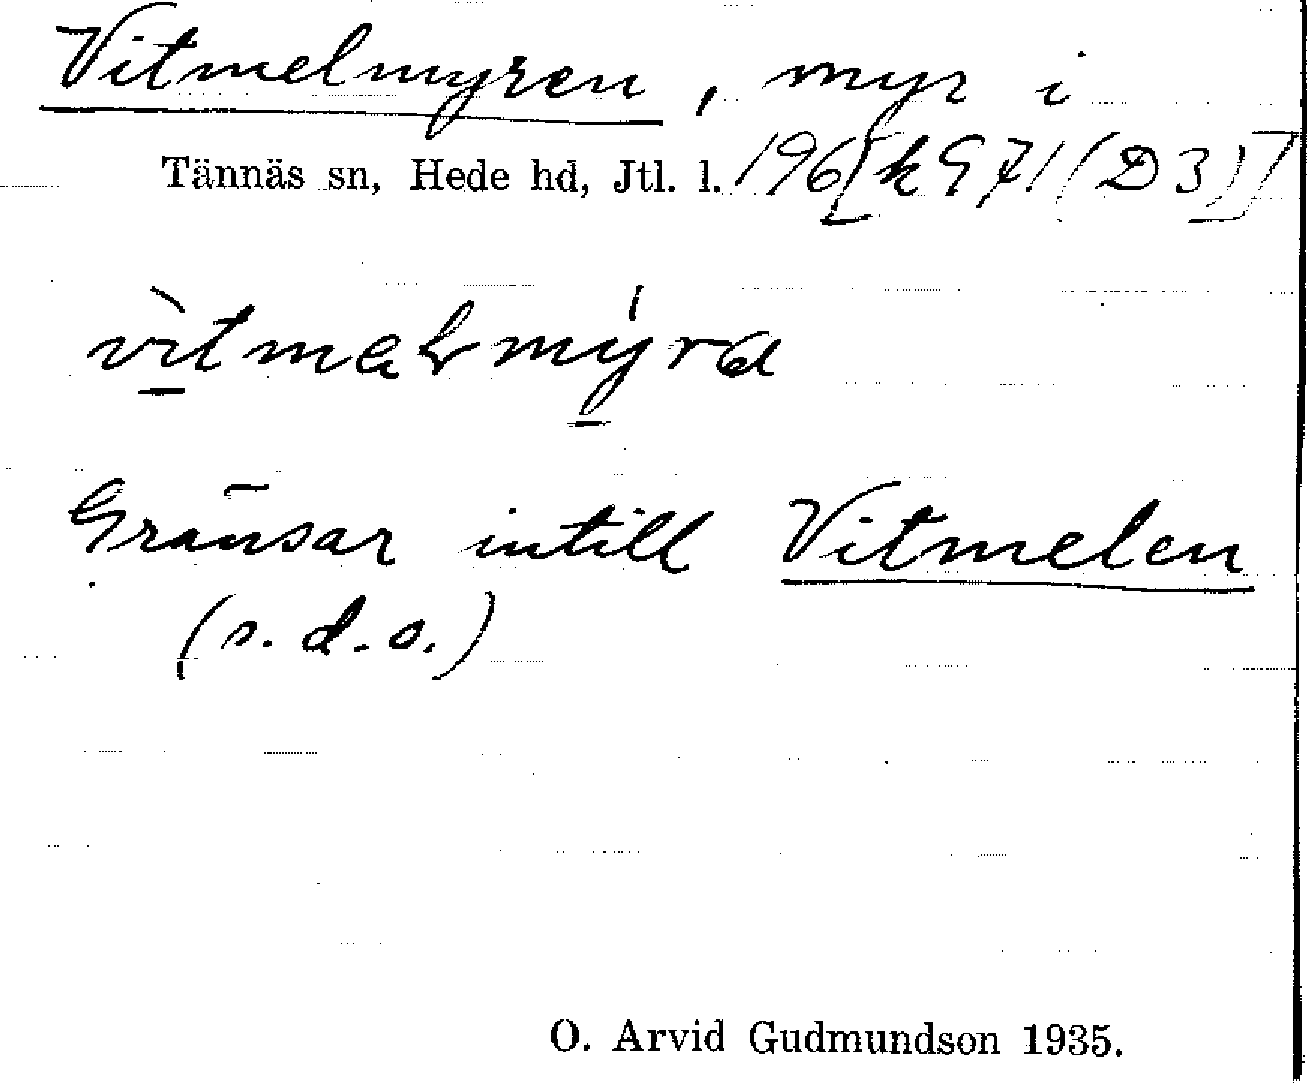 Vitmelmyren, myr i
Tännäs sn, Hede hd, Jtl. l. 196[k971(D3)]
Gränsar intill Vitmelen
(s.d.o.)
O. Arvid Gudmundson 1935.